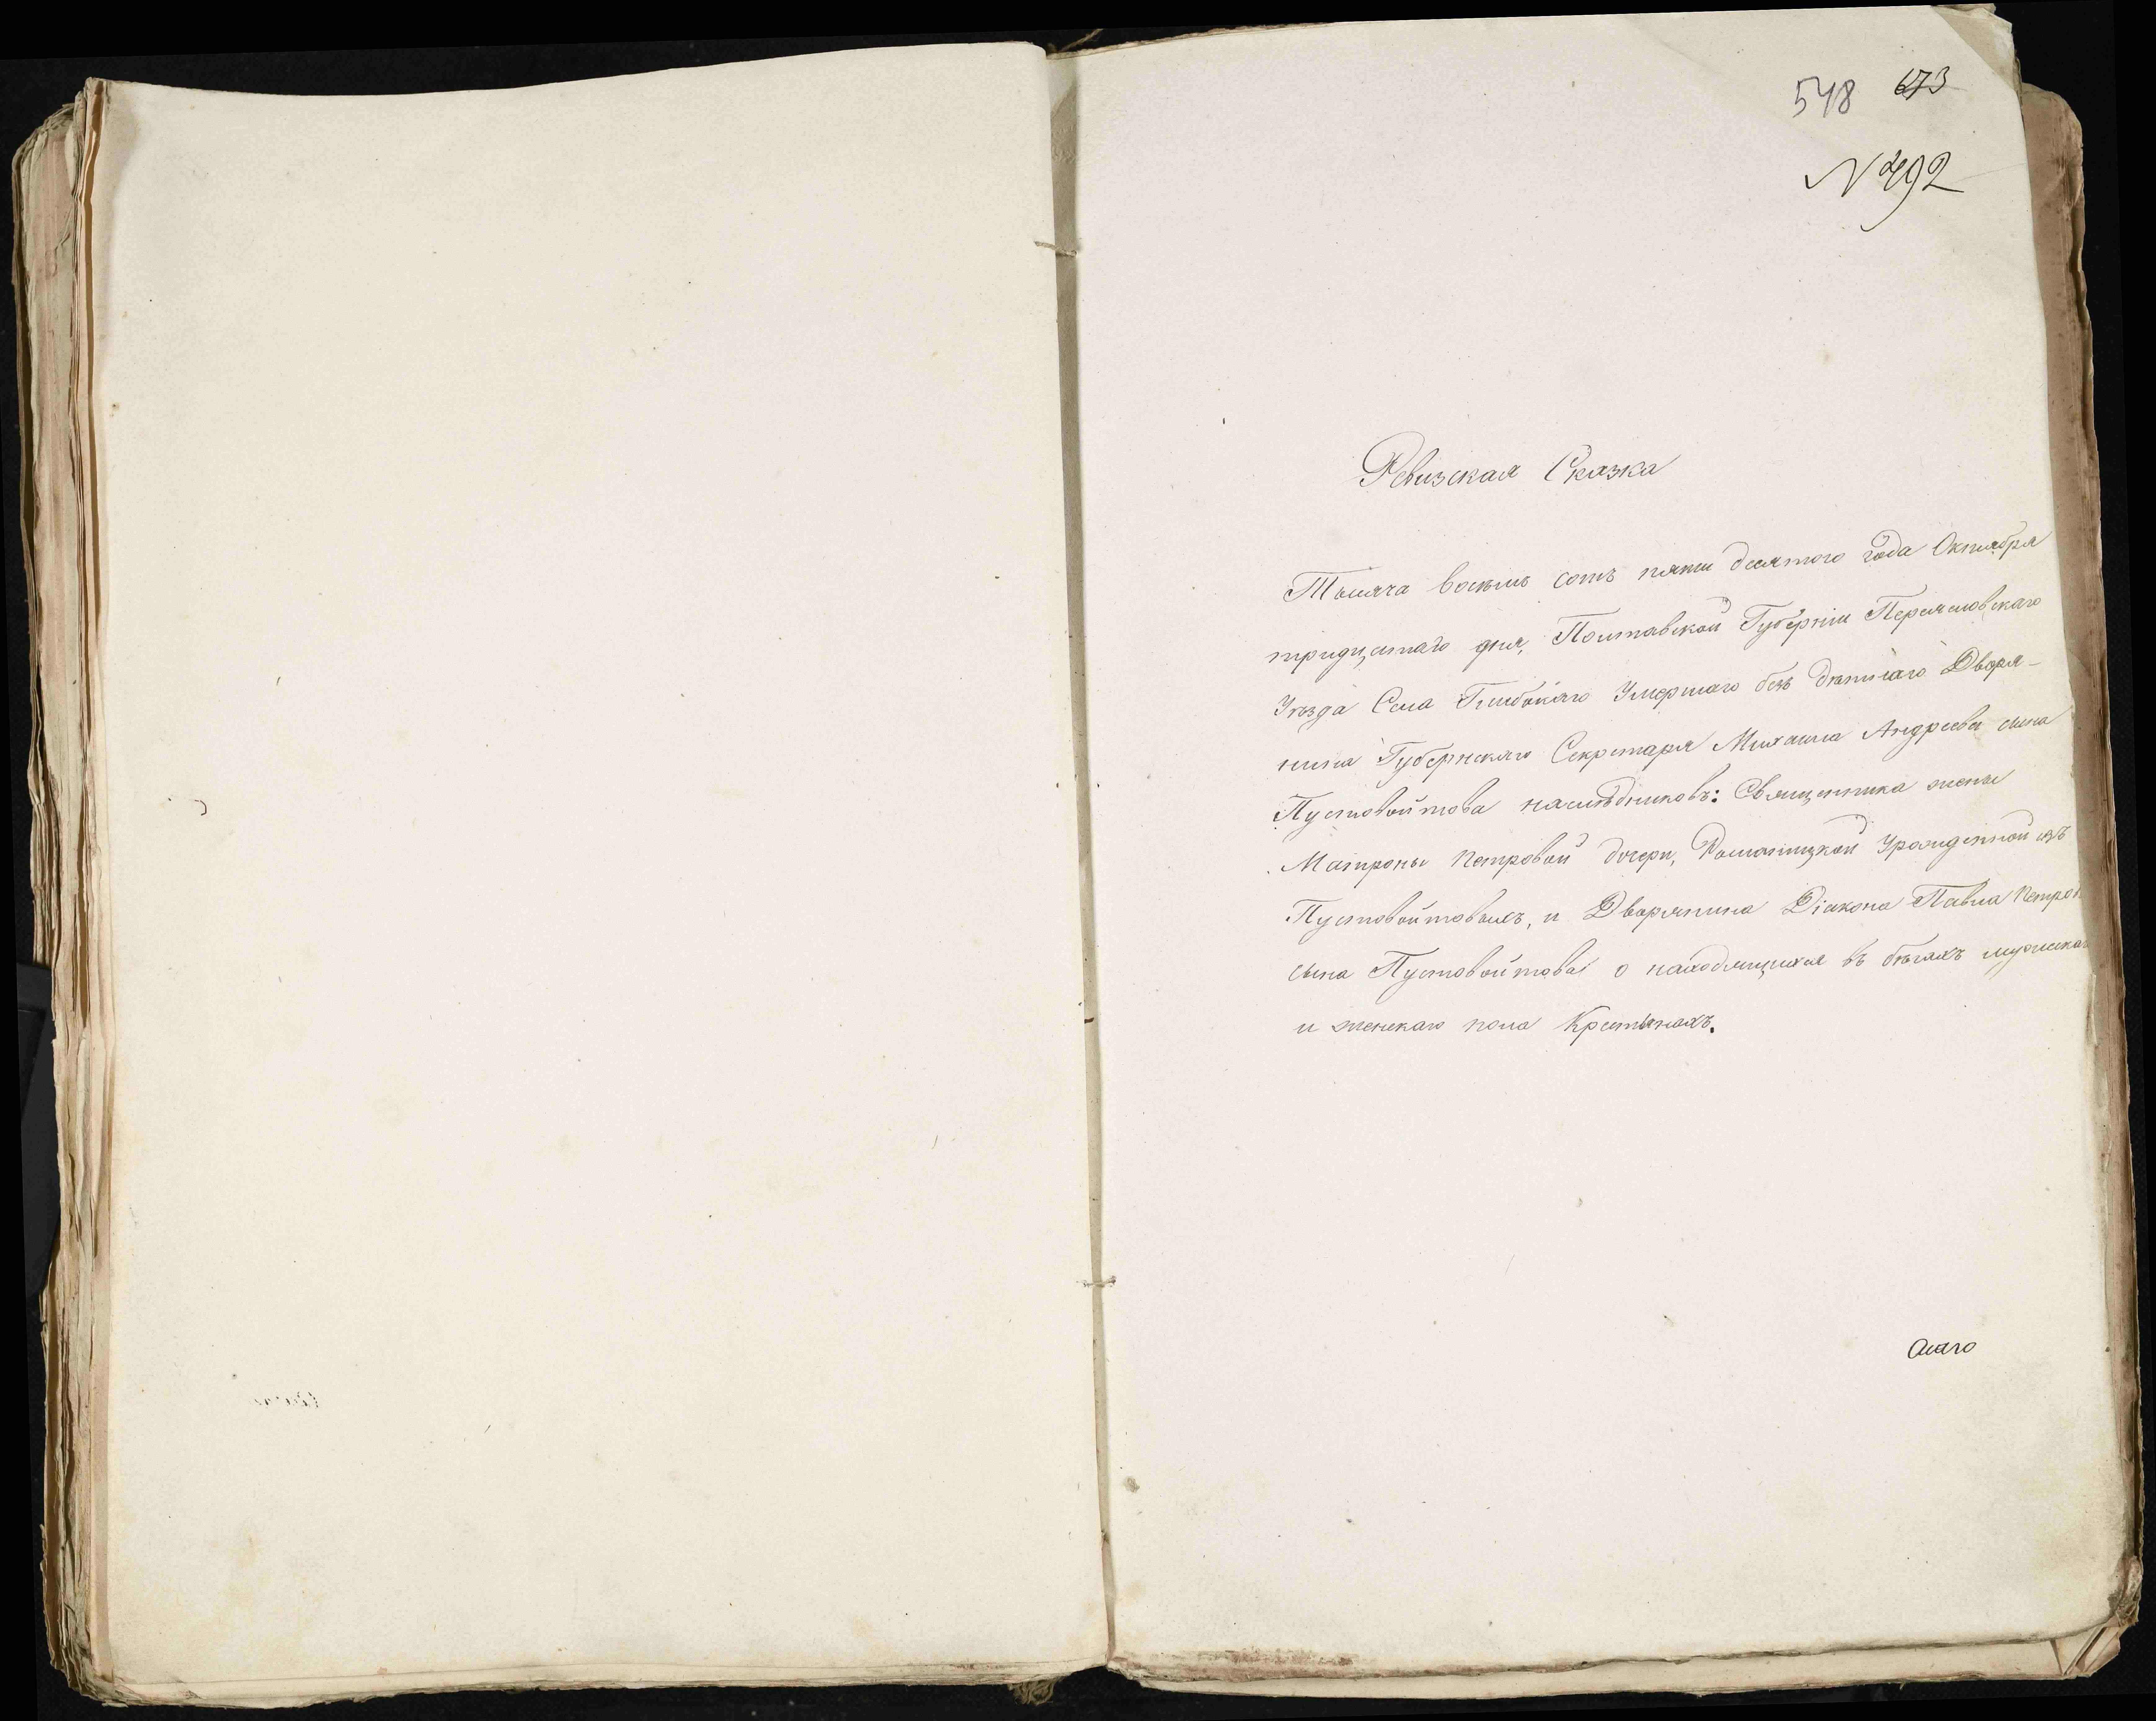 548 673
N 492
Ревизская Сказка
Тысяча восемь сотъ пяти десятого года Октября
тридцатаго дня, Полтавской Губерніи Переясловскаго
Уѣзда Села Глибокаго Умершаго безъ дѣтнаго Дворя-
нина Губернскаго Секретаря Михаила Андреева сына
Пустовойтова наслѣдниковъ: Священника жены
Матроны Петровой дочери, Романицкой Урожденной изъ
Пустовойтовыхъ, и Дворянина Діакона Павла Петров
сына Пустовойтова о находящихся въ бѣгахъ мужеска
и женскаго пола Крестьянахъ.